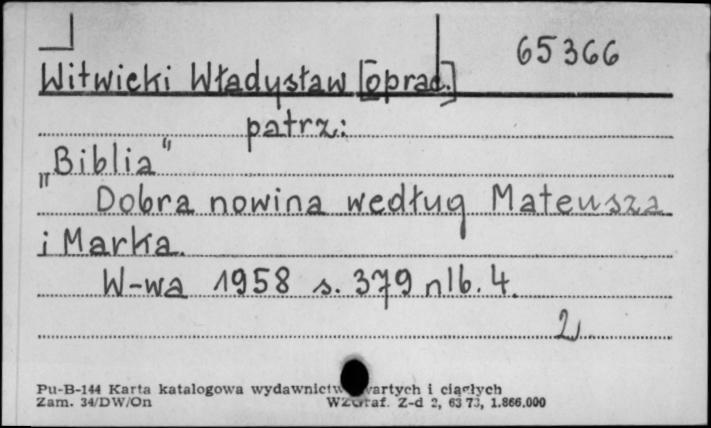 65366
Witwicki Władysław [oprac.]
patrz:
„Biblia"
Dobra nowina według Mateusza
i Marka.
W-wa 1958 s. 379 nlb. 4.
2
Pu-B-144 Karta katalogowa wydawnictw zwartych i ciągłych
Zam. 34/DW/On WZGraf. Z-d 2, 63 73, 1.866.000